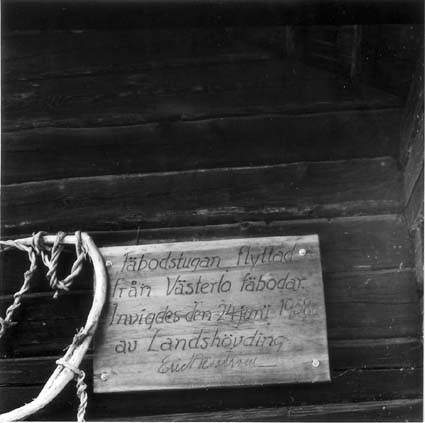 Fäbodstugan flyttad
från Västerlo fäbodar.
Invigdes den 24 juni
av Landshövding